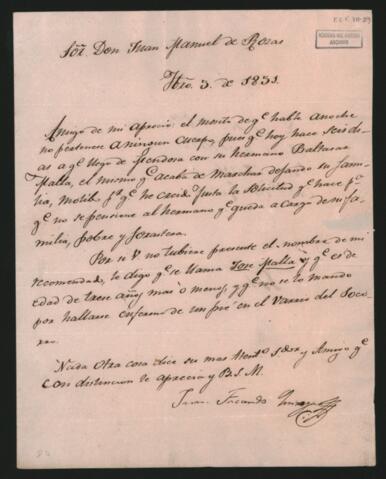 Sor. Don Juan Manuel de Rosas
3. de 1831.
Amigo de mi aprecio: el mosito de qe. hable anoche
no pertenece a ningun Cuerpo, pues qe. hoy hace seis di-
as a qe. llego de Mendoza con su hermano Baltazar
Malla, el mismo qe. acaba de marchar dejando su fami-
lia, motibo pr. qe. he creido justa la solicitud qe. hace pa.
qe. no se pensione al hermano qe. queda a cargo de su fa-
milia, pobre y forastera.
Por si V no tubiere presente el nombre de mi
recomendado, le digo qe. se llama Jose Malla y qe. es de
edad de trese años mas o menos, y qe. no se lo mando
por hallarse enfermo de un pie en el Varrio del Soco-
rro.
Nada otra cosa dice su mas Atento Servr. y Amigo qe.
con distincion le aprecia y B.S.M.
Juan Facundo Quiroga